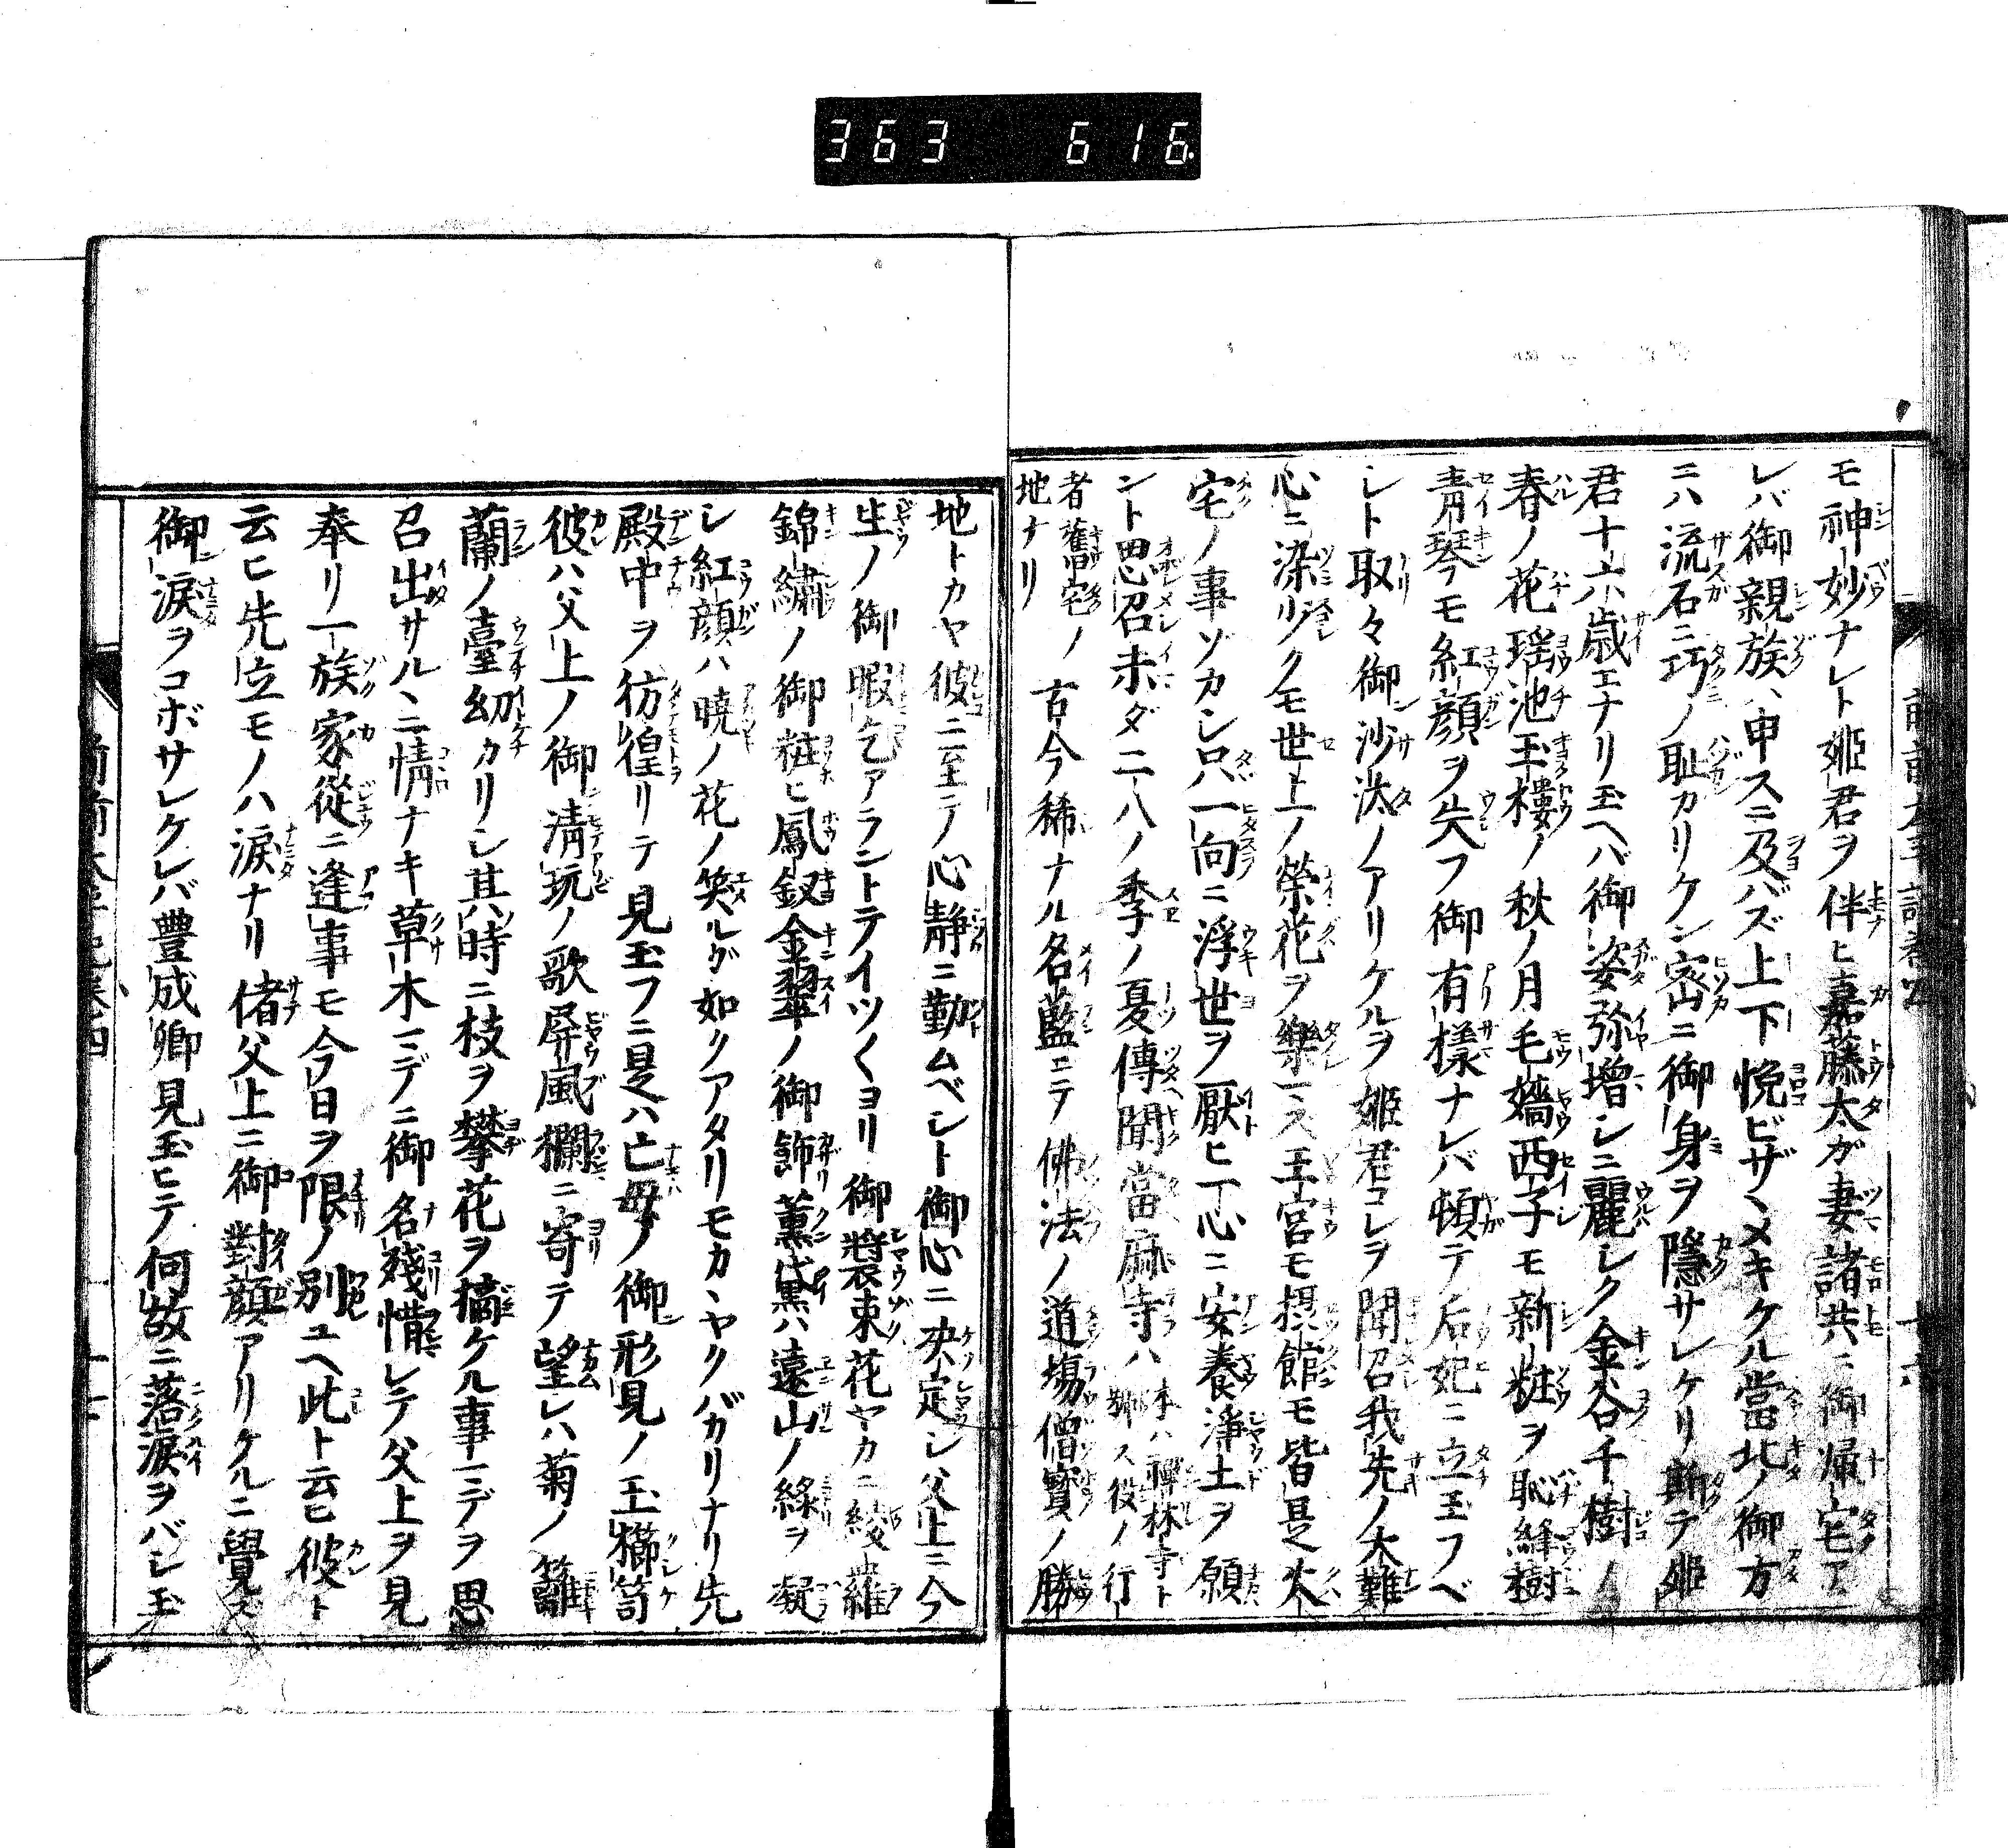 363 616
モ神妙ナレト姫君ヲ伴ヒ嘉藤太ガ妻諸共ニ御歸宅ア
レバ御親族ハ申スニ及バズ上下悦ビザヽメキケル當北ノ御方
ニハ流石ニ巧ノ恥カリケン密ニ御身ヲ隱サレケリ斯テ姫
君十六歳ニナリ玉ヘバ御姿弥増シニ麗シク金谷千樹ノ
春ノ花瑶池玉樓ノ秋ノ月毛嬙西子モ新粧ヲ恥絳樹
青琴モ紅顔ヲ失フ御有様ナレバ頓テ后妃ニ立玉フベ
シト取々御沙汰ノアリケルヲ姫君コレヲ聞召我先ノ大難
心ニ染少クモ世上ノ榮花ヲ樂マズ王宮モ摂館モ皆是火
宅ノ事ゾカシ只一向ニ浮世ヲ厭ヒ一心ニ安養淨土ヲ願
ント思召未ダ二八ノ季ノ夏傳聞當麻寺ハ本ハ禪林寺ト
號ス役ノ行
者舊宅ノ
地ナリ
古今稀ナル名藍ニテ佛法ノ道場僧寶ノ勝
地トカヤ彼ニ至テノ心靜ニ勤ムベシト御心ニ决定シ父上ニ今
生ノ御暇乞アラントテイツ〱ヨリ御裝束花ヤカニ綾羅
錦繍ノ御粧ヒ鳳釵金翠ノ御飾薫黛ハ遠山ノ緑ヲ凝
シ紅顔ハ曉ノ花ノ笑ルガ如クアタリモカヽヤクバガリナリ先
殿中ヲ彷徨リテ見玉フニ是ハ亡母ノ御形見ノ玉櫛笥
彼ハ父上ノ御清玩ノ歌屏風欄ニ寄テ望レハ菊ノ籬
蘭ノ臺幼カリシ其時ニ枝ヲ攀花ヲ摘ケル事マデヲ思
召出サルヽニ情ナキ草木マデニ御名殘惜レテ父上ヲ見
奉リ一族家從ニ逢事モ今日ヲ限ノ別ユヘ此ト云ヒ彼ト
云ヒ先立モノハ涙ナリ偖父上ニ御對顔アリケルニ覺ズ
御涙ヲコボサレケレバ豊成卿見玉ヒテ何故ニ落涙ヲバシ玉